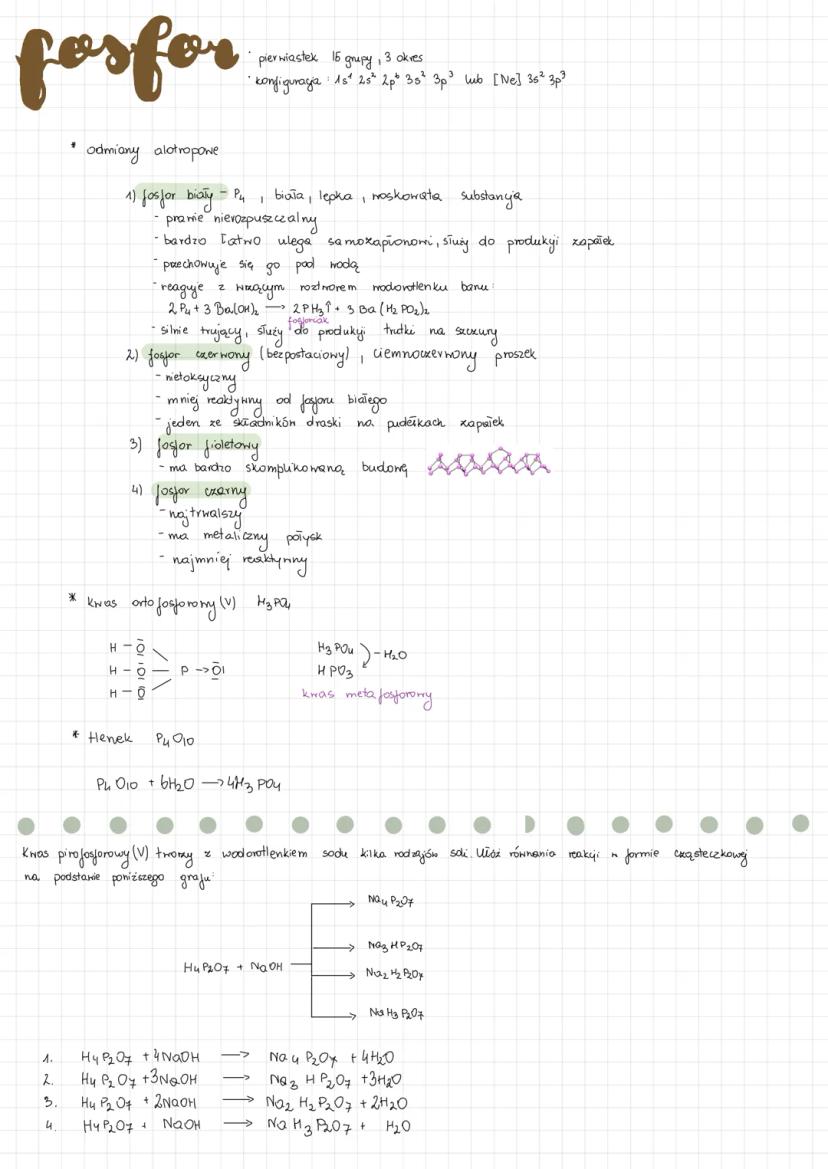 fosfor
· pierwiastek 15 grupy, 3 okres
· konfiguracja : 1s¹ 2s² 2p⁶ 3s² 3p³ lub [Ne] 3s² 3p³
* odmiany alotropowe
1) fosfor biały - P₄ , biała, lepka, woskowata substancja
- prawie nierozpuszczalny
- bardzo łatwo ulega samozapłonowi, służy do produkcji zapałek
- przechowuje się go pod wodą
- reaguje z wrzącym roztworem wodorotlenku baru:
2P₄ + 3Ba(OH)₂ → 2PH₃↑ + 3Ba(H₂PO₂)₂
fosforiak
- silnie trujący, służy do produkcji trutki na szczury
2) fosfor czerwony (bezpostaciowy), ciemnoczerwony proszek
- nietoksyczny
- mniej reaktywny od fosforu białego
- jeden ze składników draski na pudełkach zapałek
3) fosfor fioletowy
- ma bardzo skomplikowaną budowę
4) fosfor czarny
- najtrwalszy
- ma metaliczny połysk
- najmniej reaktywny
* kwas ortofosforowy (V) H₃PO₄
H - O
H - O — P -> O|
H - O
H₃PO₄
) -H₂O
HPO₃
kwas metafosforowy
* tlenek P₄O₁₀
P₄O₁₀ + 6H₂O → 4H₃PO₄
Kwas pirofosforowy (V) tworzy z wodorotlenkiem sodu kilka rodzajów soli. Ułóż równania reakcji w formie cząsteczkowej
na podstawie poniższego grafu:
Na₄P₂O₇
Na₃HP₂O₇
H₄P₂O₇ + NaOH
Na₂H₂P₂O₇
NaH₃P₂O₇
1. H₄P₂O₇ + 4NaOH → Na₄P₂O₇ + 4H₂O
2. H₄P₂O₇ + 3NaOH → Na₃HP₂O₇ + 3H₂O
3. H₄P₂O₇ + 2NaOH → Na₂H₂P₂O₇ + 2H₂O
4. H₄P₂O₇ + NaOH → NaH₃P₂O₇ + H₂O